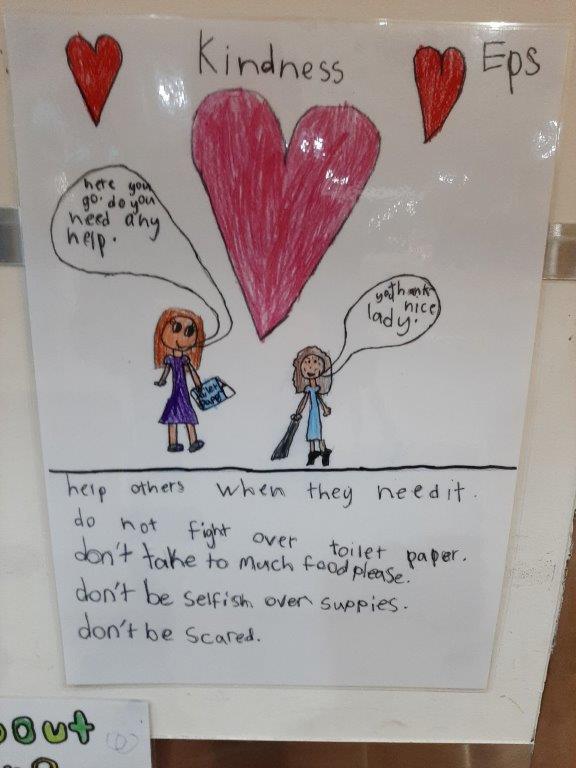 Kindness
Eps
here you
go. do you
need any
help.
thank
nice
lady.
toilet
paper
help others when they need it.
do not fight over toilet paper.
don't take to much food please.
don't be selfish over suppies.
don't be scared.
out